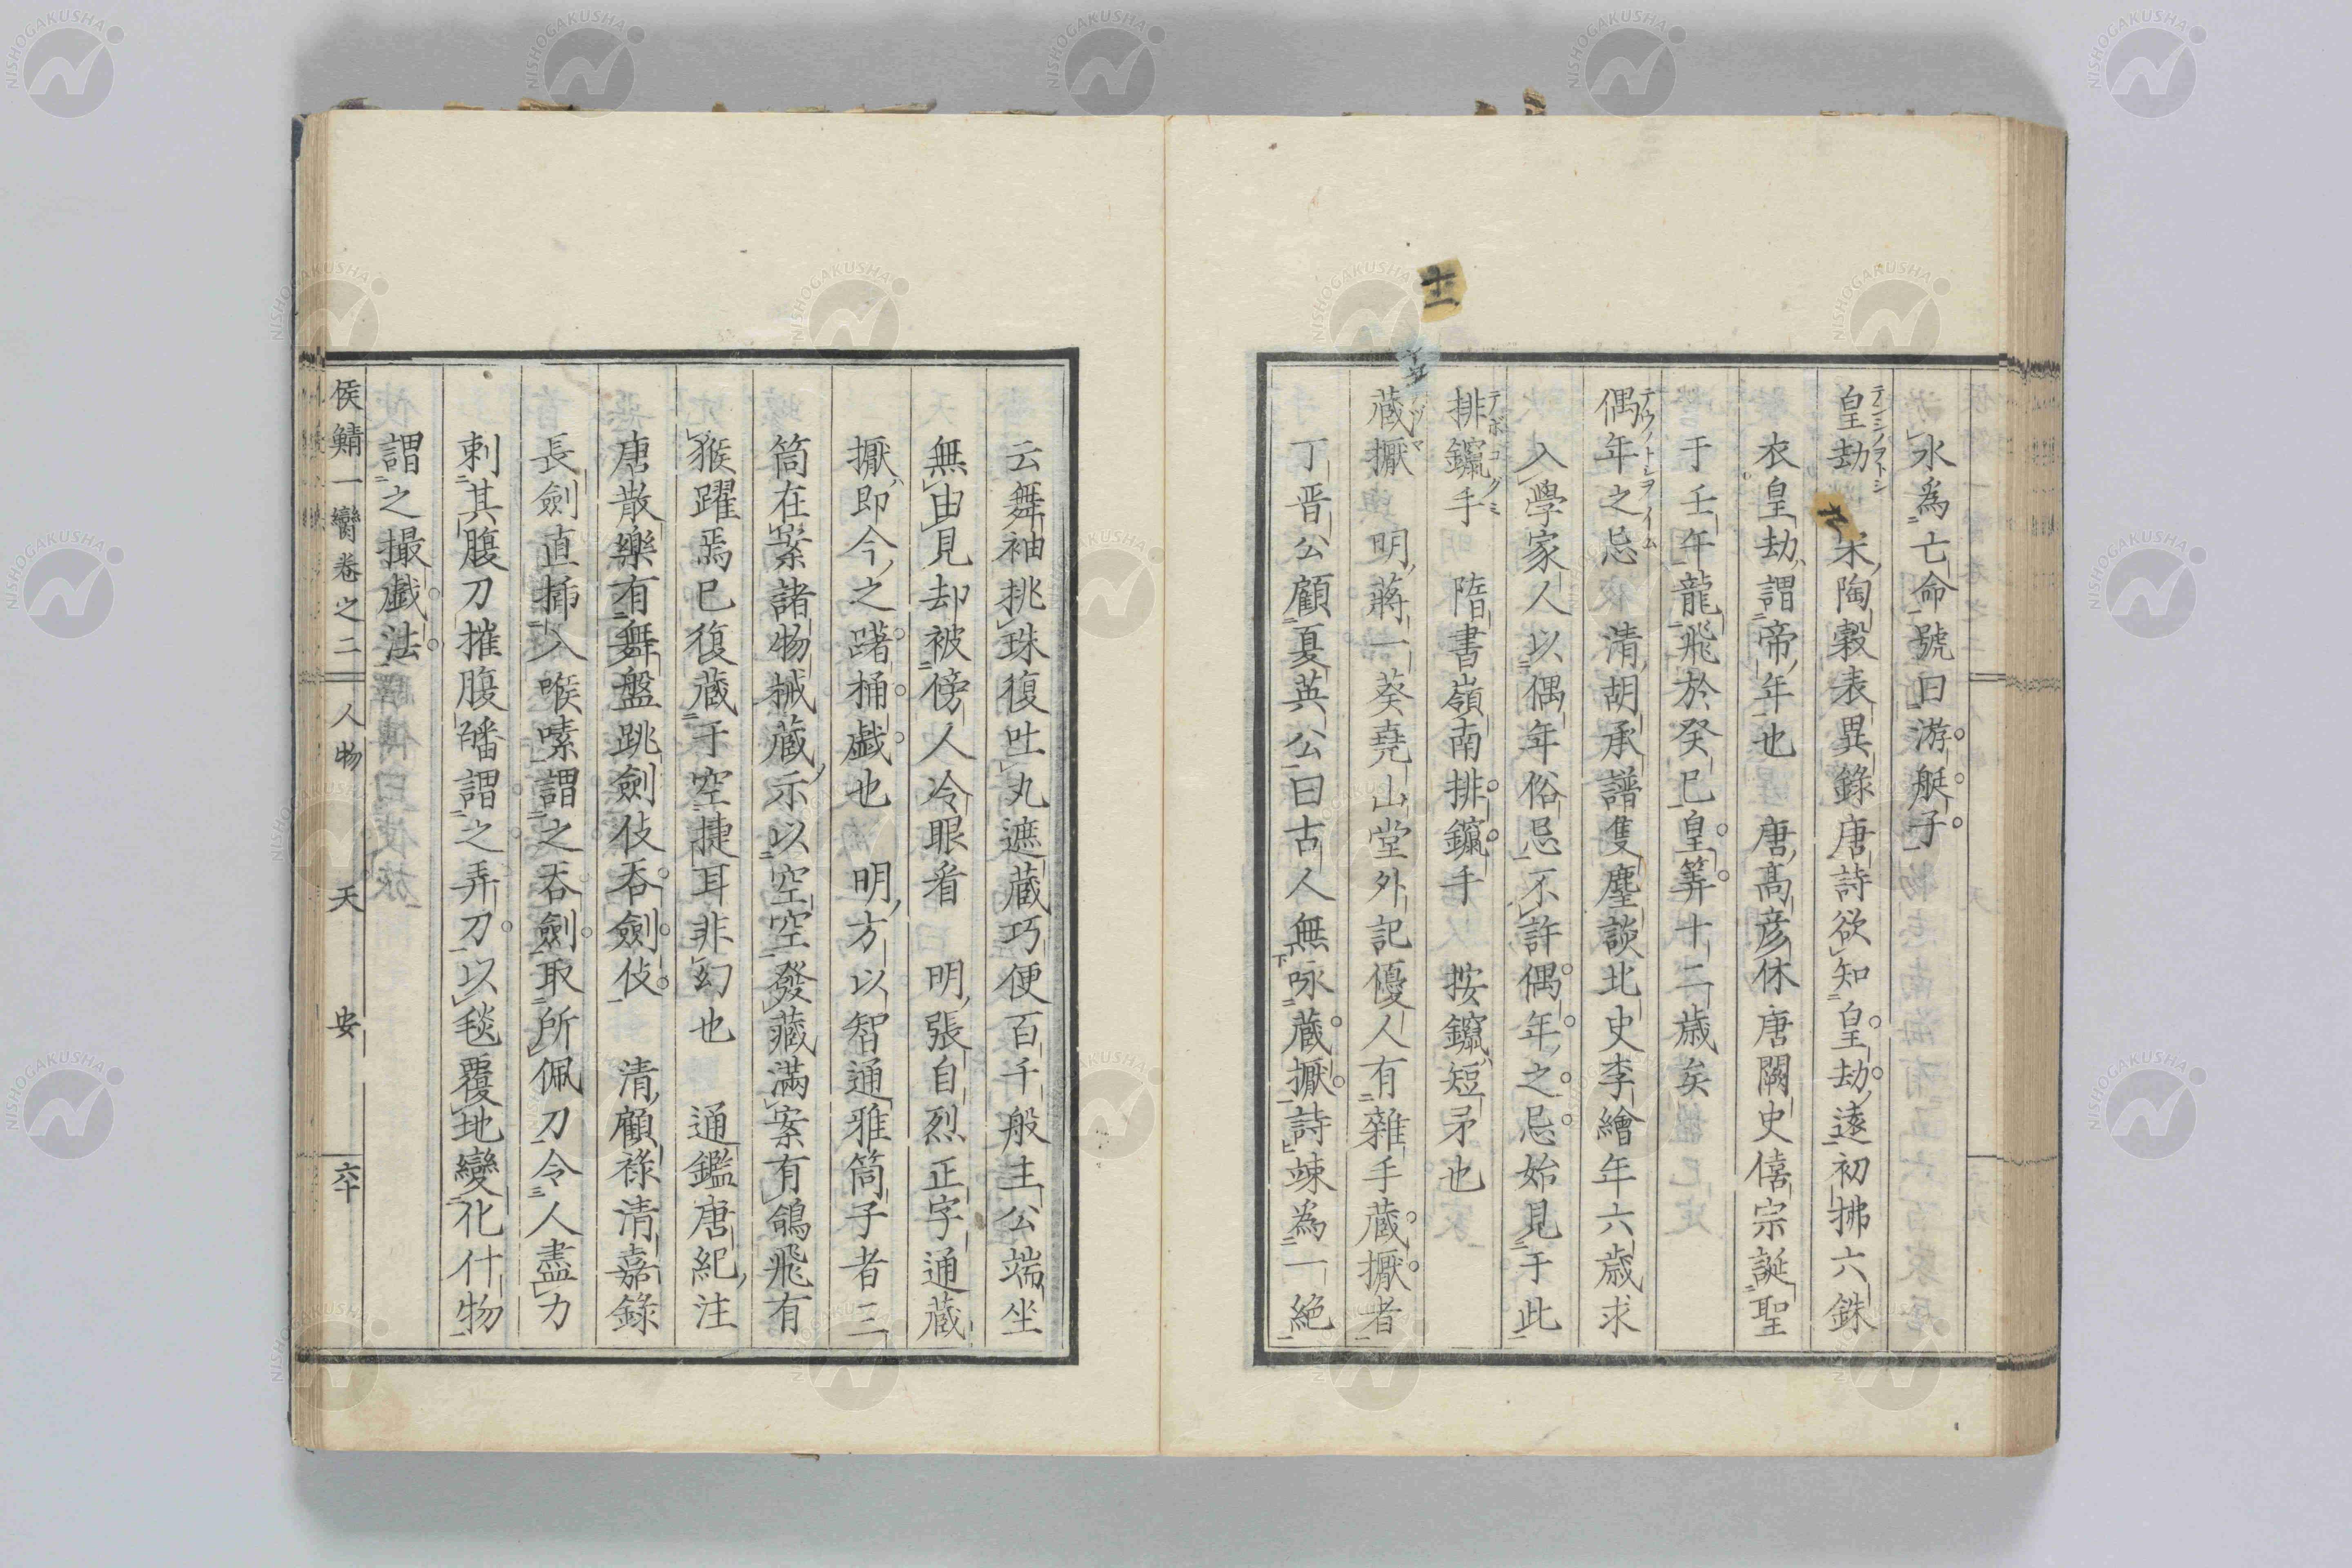 水為亡命號曰游艇子
皇劫 宋陶穀表異錄唐詩欲知皇劫遠初拂六銖
テンシノヲトシ
衣皇劫謂帝年也 唐高彦休唐闕史僖宗誕聖
于壬午龍飛於癸巳皇筭十二歳矣
偶年之忌 清胡承譜隻麈談北史李繪年六歳求
テウノトシヲイム
入學家人以偶年俗忌不許偶年之忌始見于此
排鑹手 隋書嶺南排鑹手 按鑹短矛也
テボコグミ
藏擫 明蔣一葵堯山堂外記優人有雜手藏擫者
ヅマ
丁晋公顧夏英公曰古人無咏藏擫詩竦為一絶
十一
云舞袖挑珠復吐丸遮藏巧便百千般主公端坐
無由見却被傍人冷眼看 明張自烈正字通藏
擫即今之踷桶戱也 明方以智通雅筒子者三
筒在案諸物械藏示以空空發藏滿案有鴿飛有
猴躍焉已復藏于空捷耳非幻也 通鑑唐紀注
唐散樂有舞盤跳劍伎吞劍伎 清顧祿清嘉錄
長劍直揷入喉嗉謂之吞劍取所佩刀令人盡力
刺其腹刀摧腹皤謂之弄刀以毯覆地變化什物
謂之撮戱法
侯鯖一臠卷之二 人物 天 安 六十
NISHOGAKUSHA